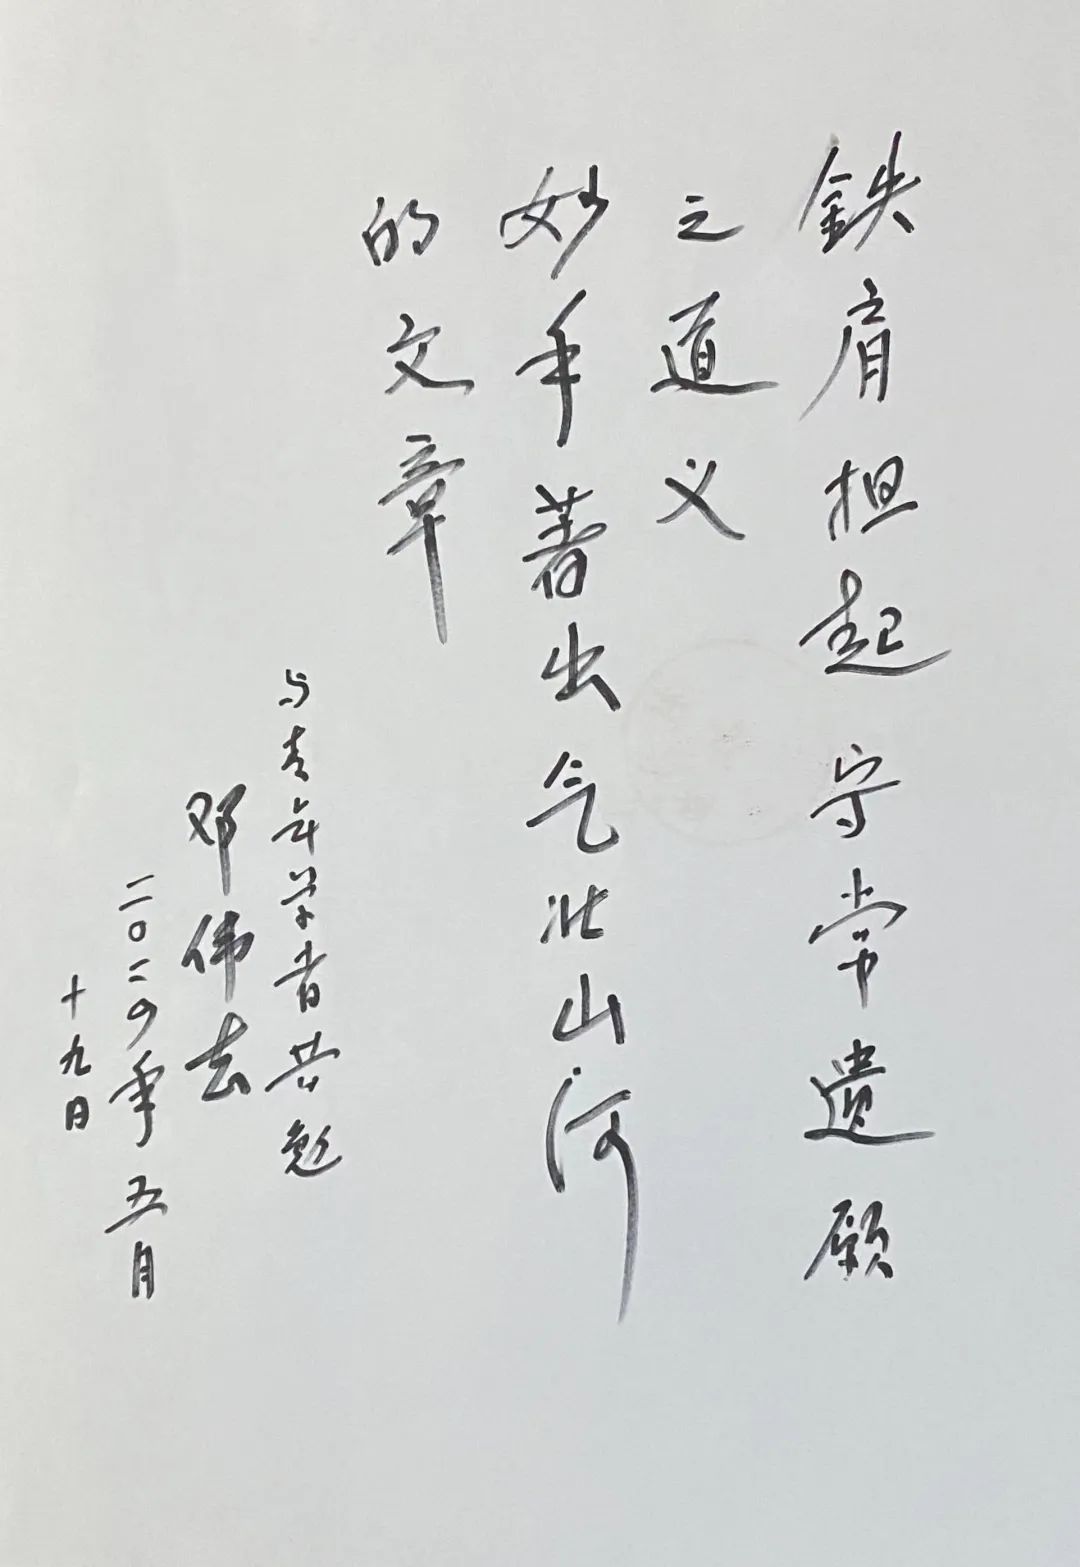 鉄肩担起守常遗愿
之道义
妙手著出气壮山河
的文章
与青年学者共勉
邓伟志
二〇二四年五月
十九日